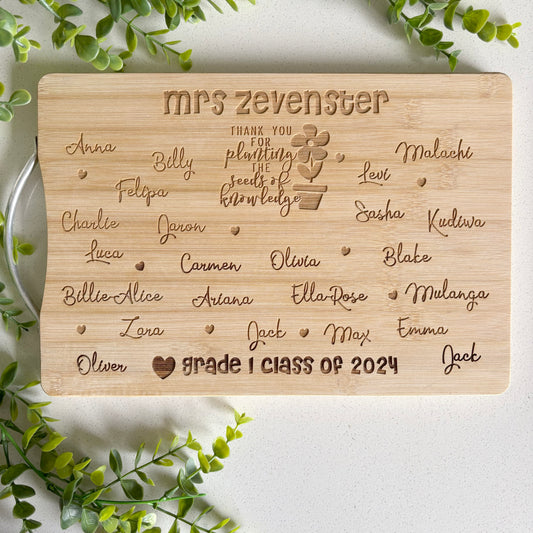 mrs zevenster
THANK YOU
FOR
planting
THE
seeds of
knowledge
Anna
Billy
Levi
Malachi
Felipa
Charlie
Jaron
Sasha
Kudiwa
Luca
Carmen
Olivia
Blake
Billie-Alice
Ariana
Ella-Rose
Mulanga
Zara
Jack
Max
Emma
Oliver
grade 1 class of 2024
Jack